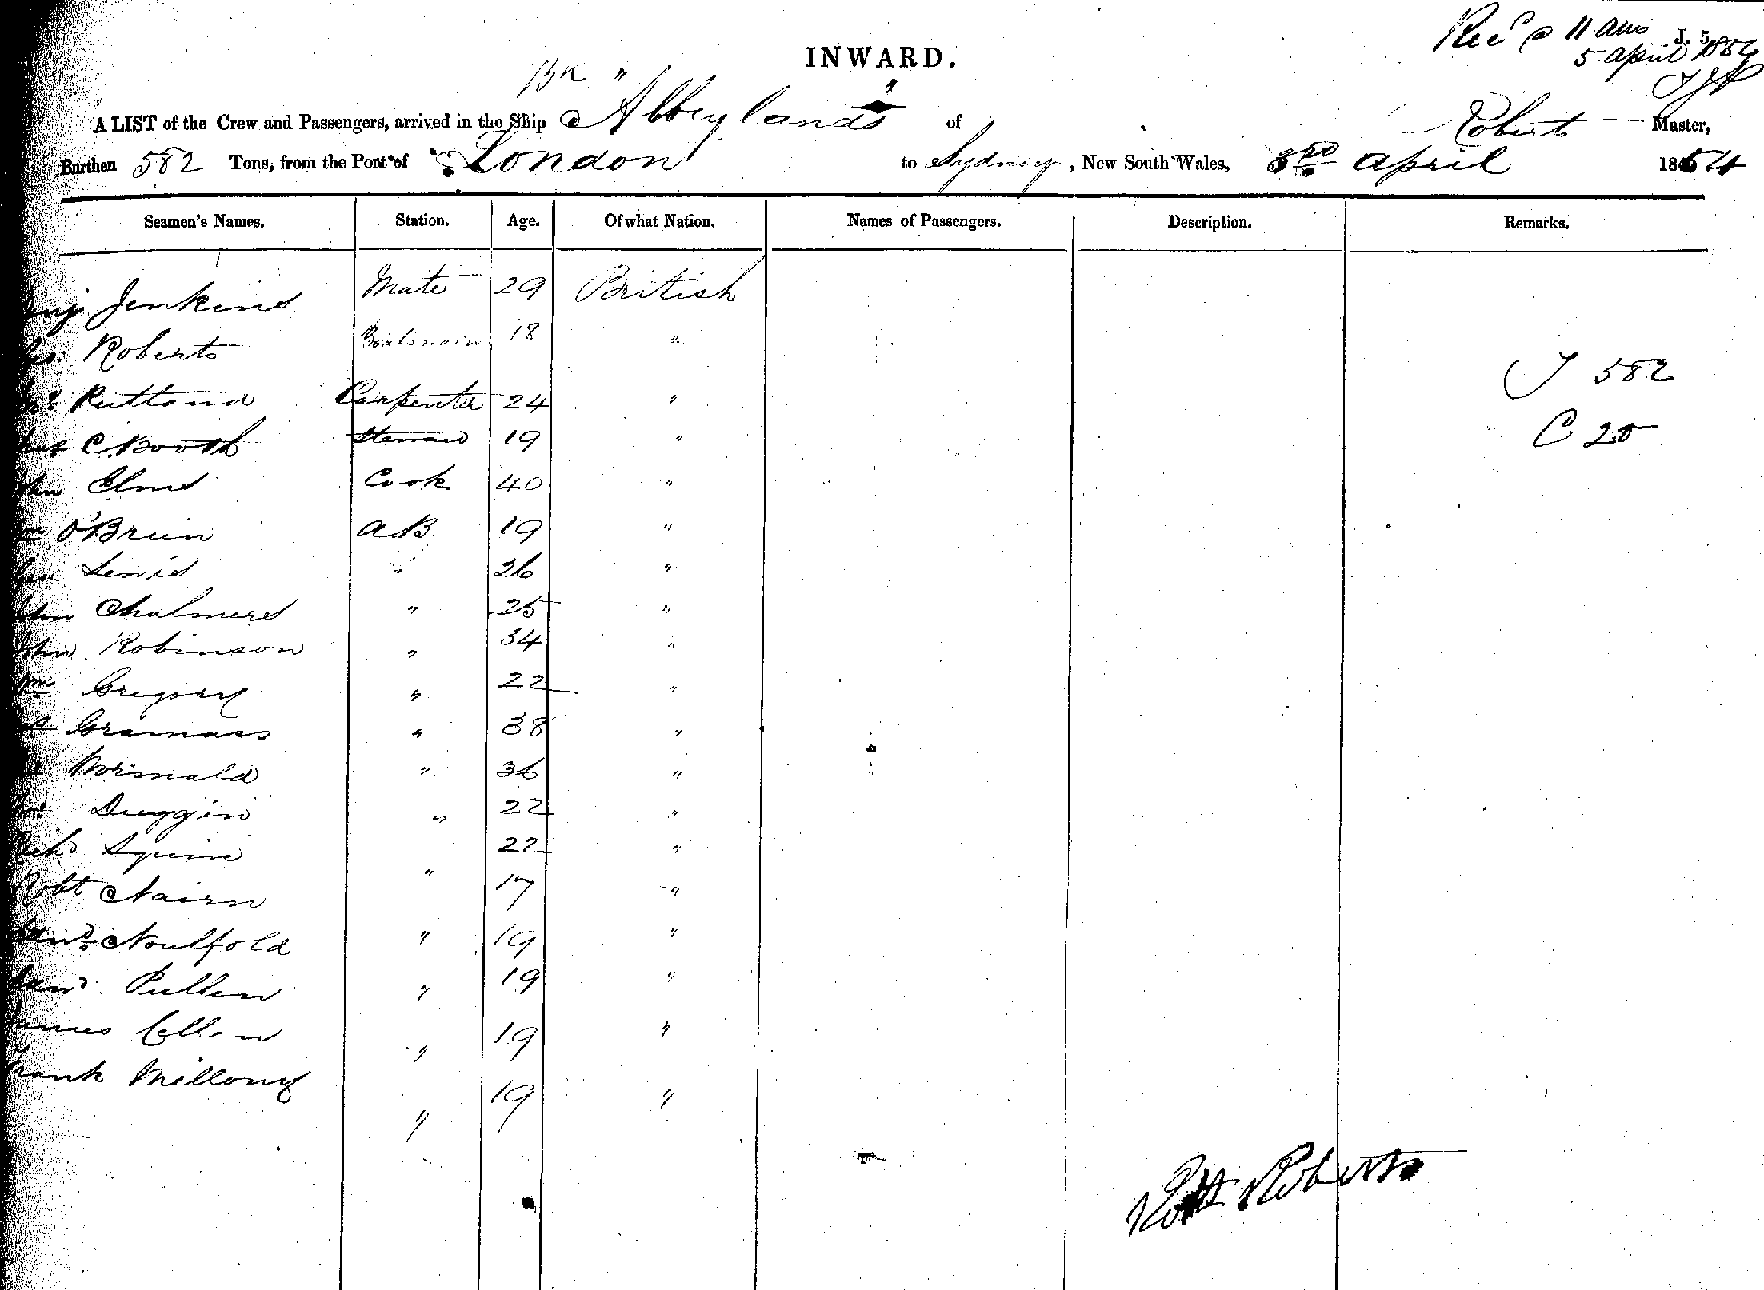 Recd @ 11 am J. 5.
5 April 1854
INWARD.
Bk "
A LIST of the Crew and Passengers, arrived in the Ship Abbeylands of Roberts Master,
Burthen 582 Tons, from the Port of London to Sydney, New South Wales, 3rd April 1854
Seamen's Names. Station. Age. Of what Nation. Names of Passengers. Description. Remarks.
Jenkins Mate 29 British
Roberts Boatswain 18 "
T 582
Rutland Carpenter 24 "
C 20
C Booth Steward 19 "
Elms Cook 40 "
O'Brien AB 19 "
Lewis " 26 "
Chalmers " 25 "
Robinson " 34 "
Gregory " 22 "
" 38 "
" 36 "
Duggin " 22 "
22 "
Robt Nairn " 17 "
Noulfold " 19 "
Pullen " 19 "
James " 19 "
Frank " 19 "
Robt Roberts